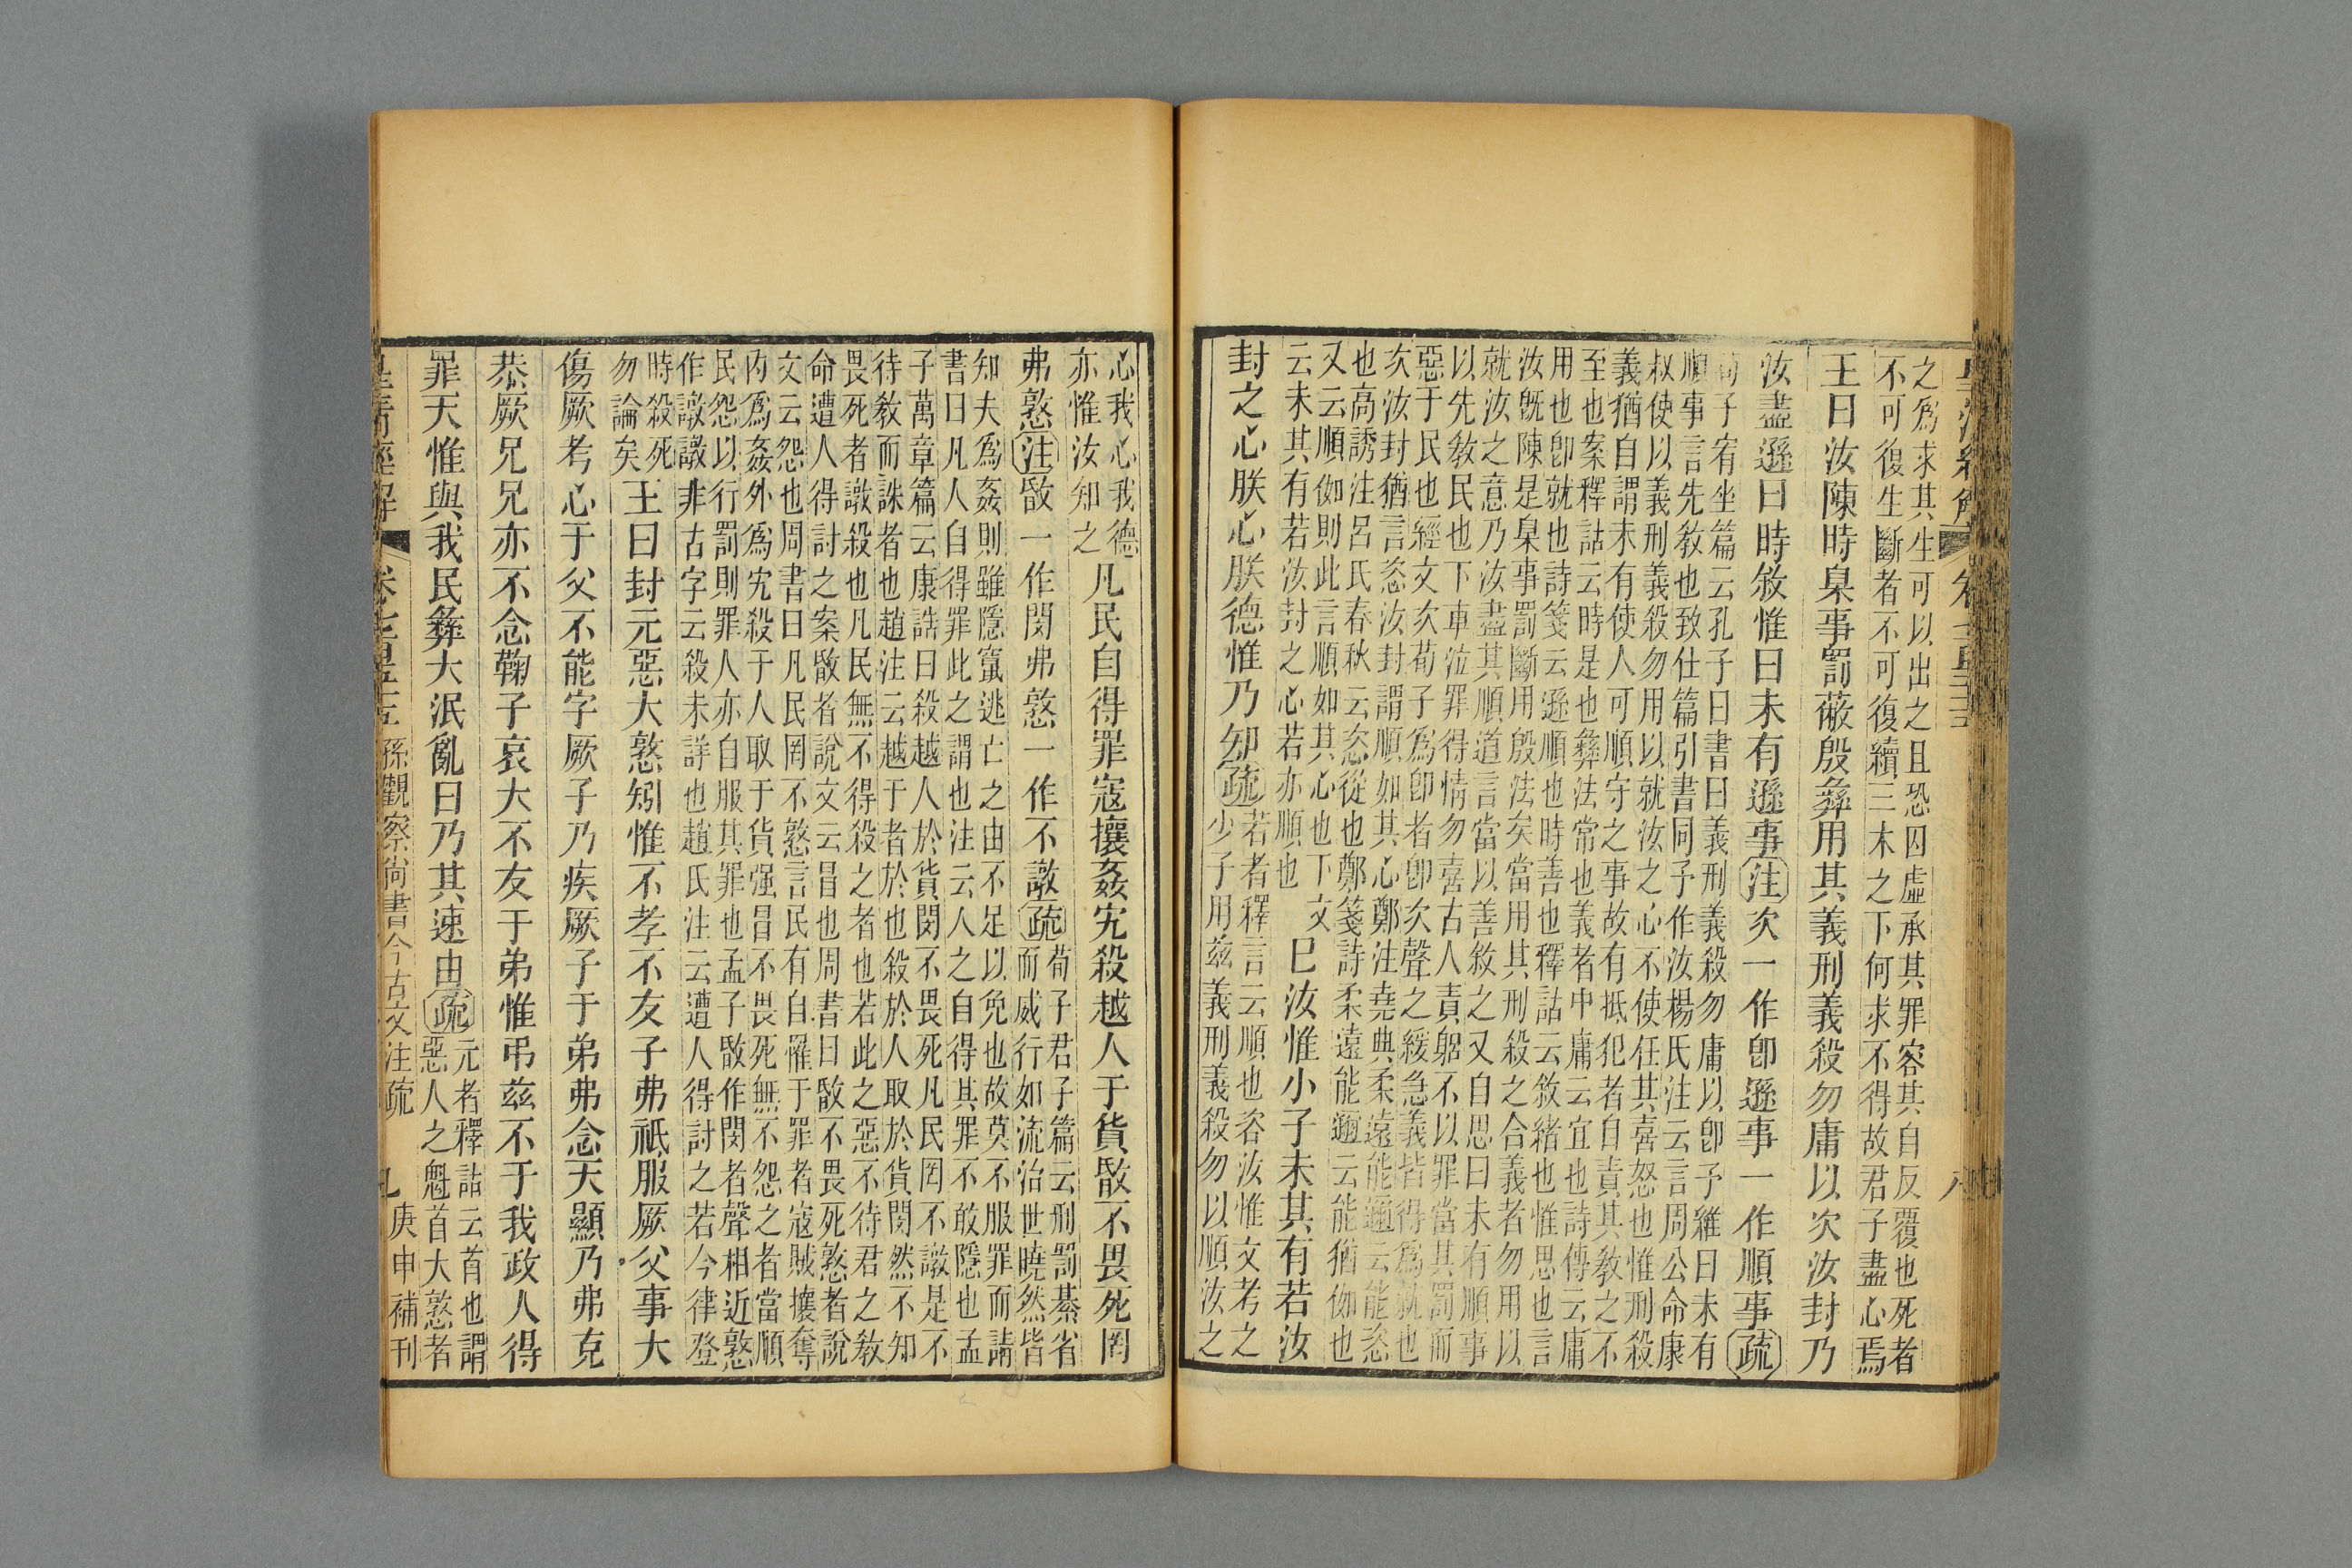 之爲求其生可以出之且恐囚虛承其罪容其自反覆也死者
不可復生斷者不可復續三木之下何求不得故君子盡心焉
王曰汝陳時臬事罰蔽殷彝用其義刑義殺勿庸以次汝封乃
汝盡遜曰時敘惟曰未有遜事注次一作卽遜事一作順事疏
荀子宥坐篇云孔子曰書曰義刑義殺勿庸以卽予維曰未有
順事言先敎也致仕篇引書同予作汝楊氏注云言周公命康
叔使以義刑義殺勿用以就汝之心不使任其喜怒也惟刑殺
義猶自謂未有使人可順守之事故有抵犯者自責其敎之不
至也案釋詁云時是也彝法常也義者中庸云宜也詩傳云庸
用也卽就也詩箋云遜順也時善也釋詁云敘緒也惟思也言
汝旣陳是臬事罰斷用殷法矣當用其刑殺之合義者勿用以
就汝之意乃汝盡其順道言當以善敘之又自思曰未有順事
以先敎民也下車泣罪得情勿喜古人責躬不以罪當其罰而
惡于民也經文次荀子爲卽者卽次聲之緩急義皆得爲就也
次汝封猶言恣汝封謂順如其心鄭注堯典柔遠能邇云能恣
也高誘注呂氏春秋云恣從也鄭箋詩柔遠能邇云能猶伽也
又云順伽則此言順如其心也下文
云未其有若汝封之心若亦順也
已汝惟小子未其有若汝
封之心朕心朕德惟乃知疏
若者釋言云順也咨汝惟文考之
少子用茲義刑義殺勿以順汝之
心我心我德
亦惟汝知之
凡民自得罪寇攘姦宄殺越人于貨暋不畏死罔
弗憝注暋一作閔弗憝一作不譈疏
荀子君子篇云刑罰綦省
而威行如流治世曉然皆
知夫爲姦則雖隱竄逃亡之由不足以免也故莫不服罪而請
書曰凡人自得罪此之謂也注云人之自得其罪不敢隱也孟
子萬章篇云康誥曰殺越人於貨閔不畏死凡民罔不譈是不
待敎而誅者也趙注云越于者於也殺於人取於貨閔然不知
畏死者譈殺也凡民無不得殺之者也若此之惡不待君之敎
命遭人得討之案暋者說文云冒也周書曰暋不畏死憝者說
文云怨也周書曰凡民罔不憝言民有自罹于罪者寇賊攘奪
內爲姦外爲宄殺于人取于貨强冒不畏死無不怨之者當順
民怨以行罰則罪人亦自服其罪也孟子暋作閔者聲相近憝
作譈譈非古字云殺未詳也趙氏注云遭人得討之若今律登
時殺死
勿論矣
王曰封元惡大憝矧惟不孝不友子弗祇服厥父事大
傷厥考心于父不能字厥子乃疾厥子于弟弗念天顯乃弗克
恭厥兄兄亦不念鞠子哀大不友于弟惟弔茲不于我政人得
罪天惟與我民彝大泯亂曰乃其速由疏
元者釋詁云首也謂
惡人之魁首大憝者
孫觀察尚書今古文注疏
庚申補刊